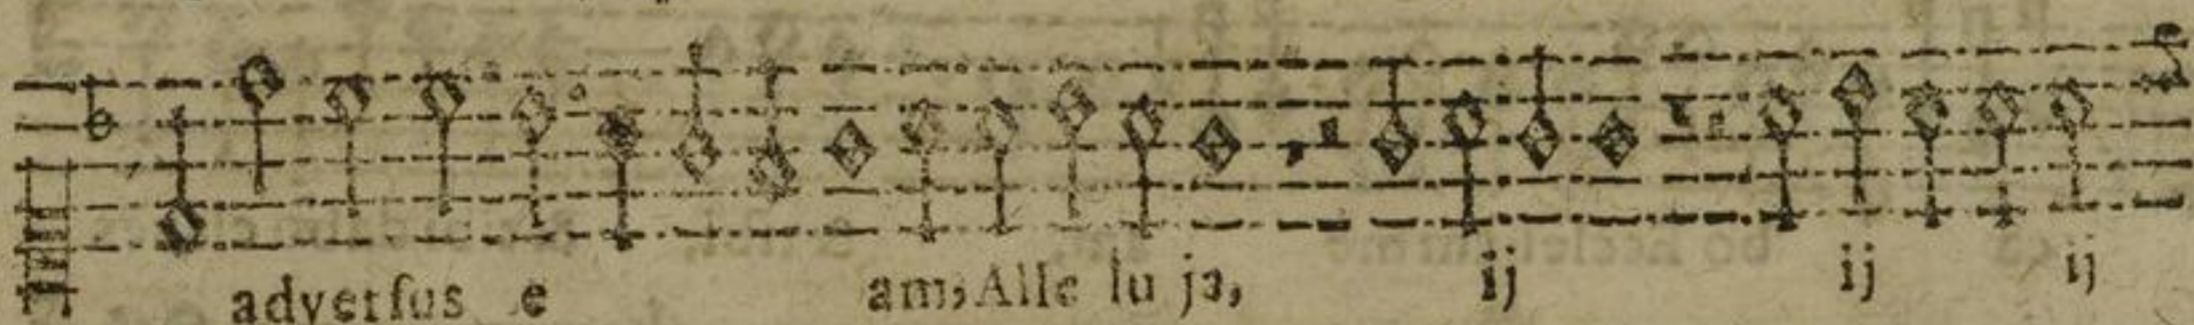 adversus e am, Alle lu ja, ij ij ij